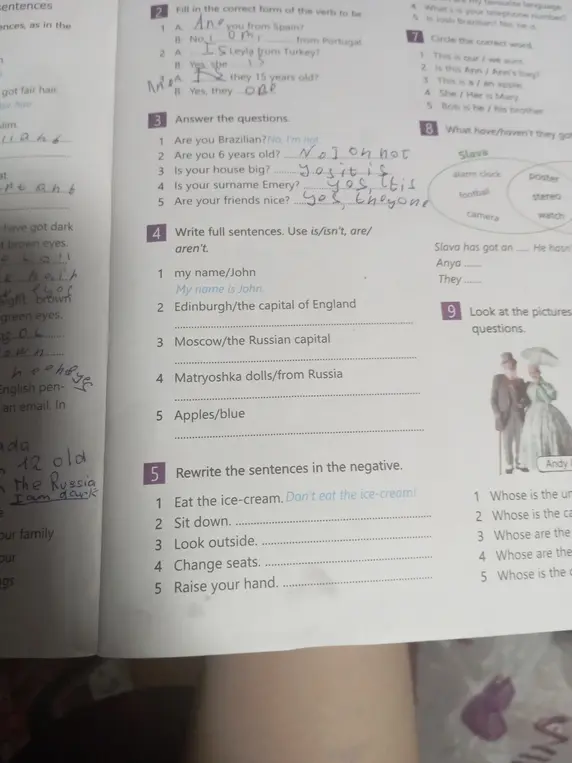 2 Fill in the correct form of the verb to be
1 A: Are you from Spain?
B: No, I om, from Portugal
2 A: IS Leyla from Turkey?
B: Yes, she IS
3 A: they 15 years old?
B: Yes, they
3 Answer the questions.
1 Are you Brazilian? No, I'm not
2 Are you 6 years old? No I on not
3 Is your house big? yes it is
4 Is your surname Emery? yes, it is
5 Are your friends nice? yes, they
4 Write full sentences. Use is/isn't, are/
aren't.
1 my name/John
My name is John.
2 Edinburgh/the capital of England
3 Moscow/the Russian capital
4 Matryoshka dolls/from Russia
5 Apples/blue
5 Rewrite the sentences in the negative.
1 Eat the ice-cream. Don't eat the ice-cream!
2 Sit down.
3 Look outside.
4 Change seats.
5 Raise your hand.
entences
nces, as in the
got fair hair.
slim.
have got dark
t brown eyes.
light brown
green eyes.
English pen-
an email. In
12 old
the Russia
I am dark
our family
our
gs
4 What's is your telephone number?
5 Is Josh Brazilian? No, he is
7 Circle the correct word.
1 This is our / we aunt.
2 Is this Ann / Ann's bag?
3 This is a / an apple.
4 She / Her is Mary.
5 Bob is he / his brother.
8 What have/haven't they got
Slava
alarm clock
football
camera
poster
stereo
watch
Slava has got an ..... He hasn
Anya ......
They ......
9 Look at the pictures
questions.
Andy
1 Whose is the
2 Whose is the
3 Whose are the
4 Whose are the
5 Whose is the